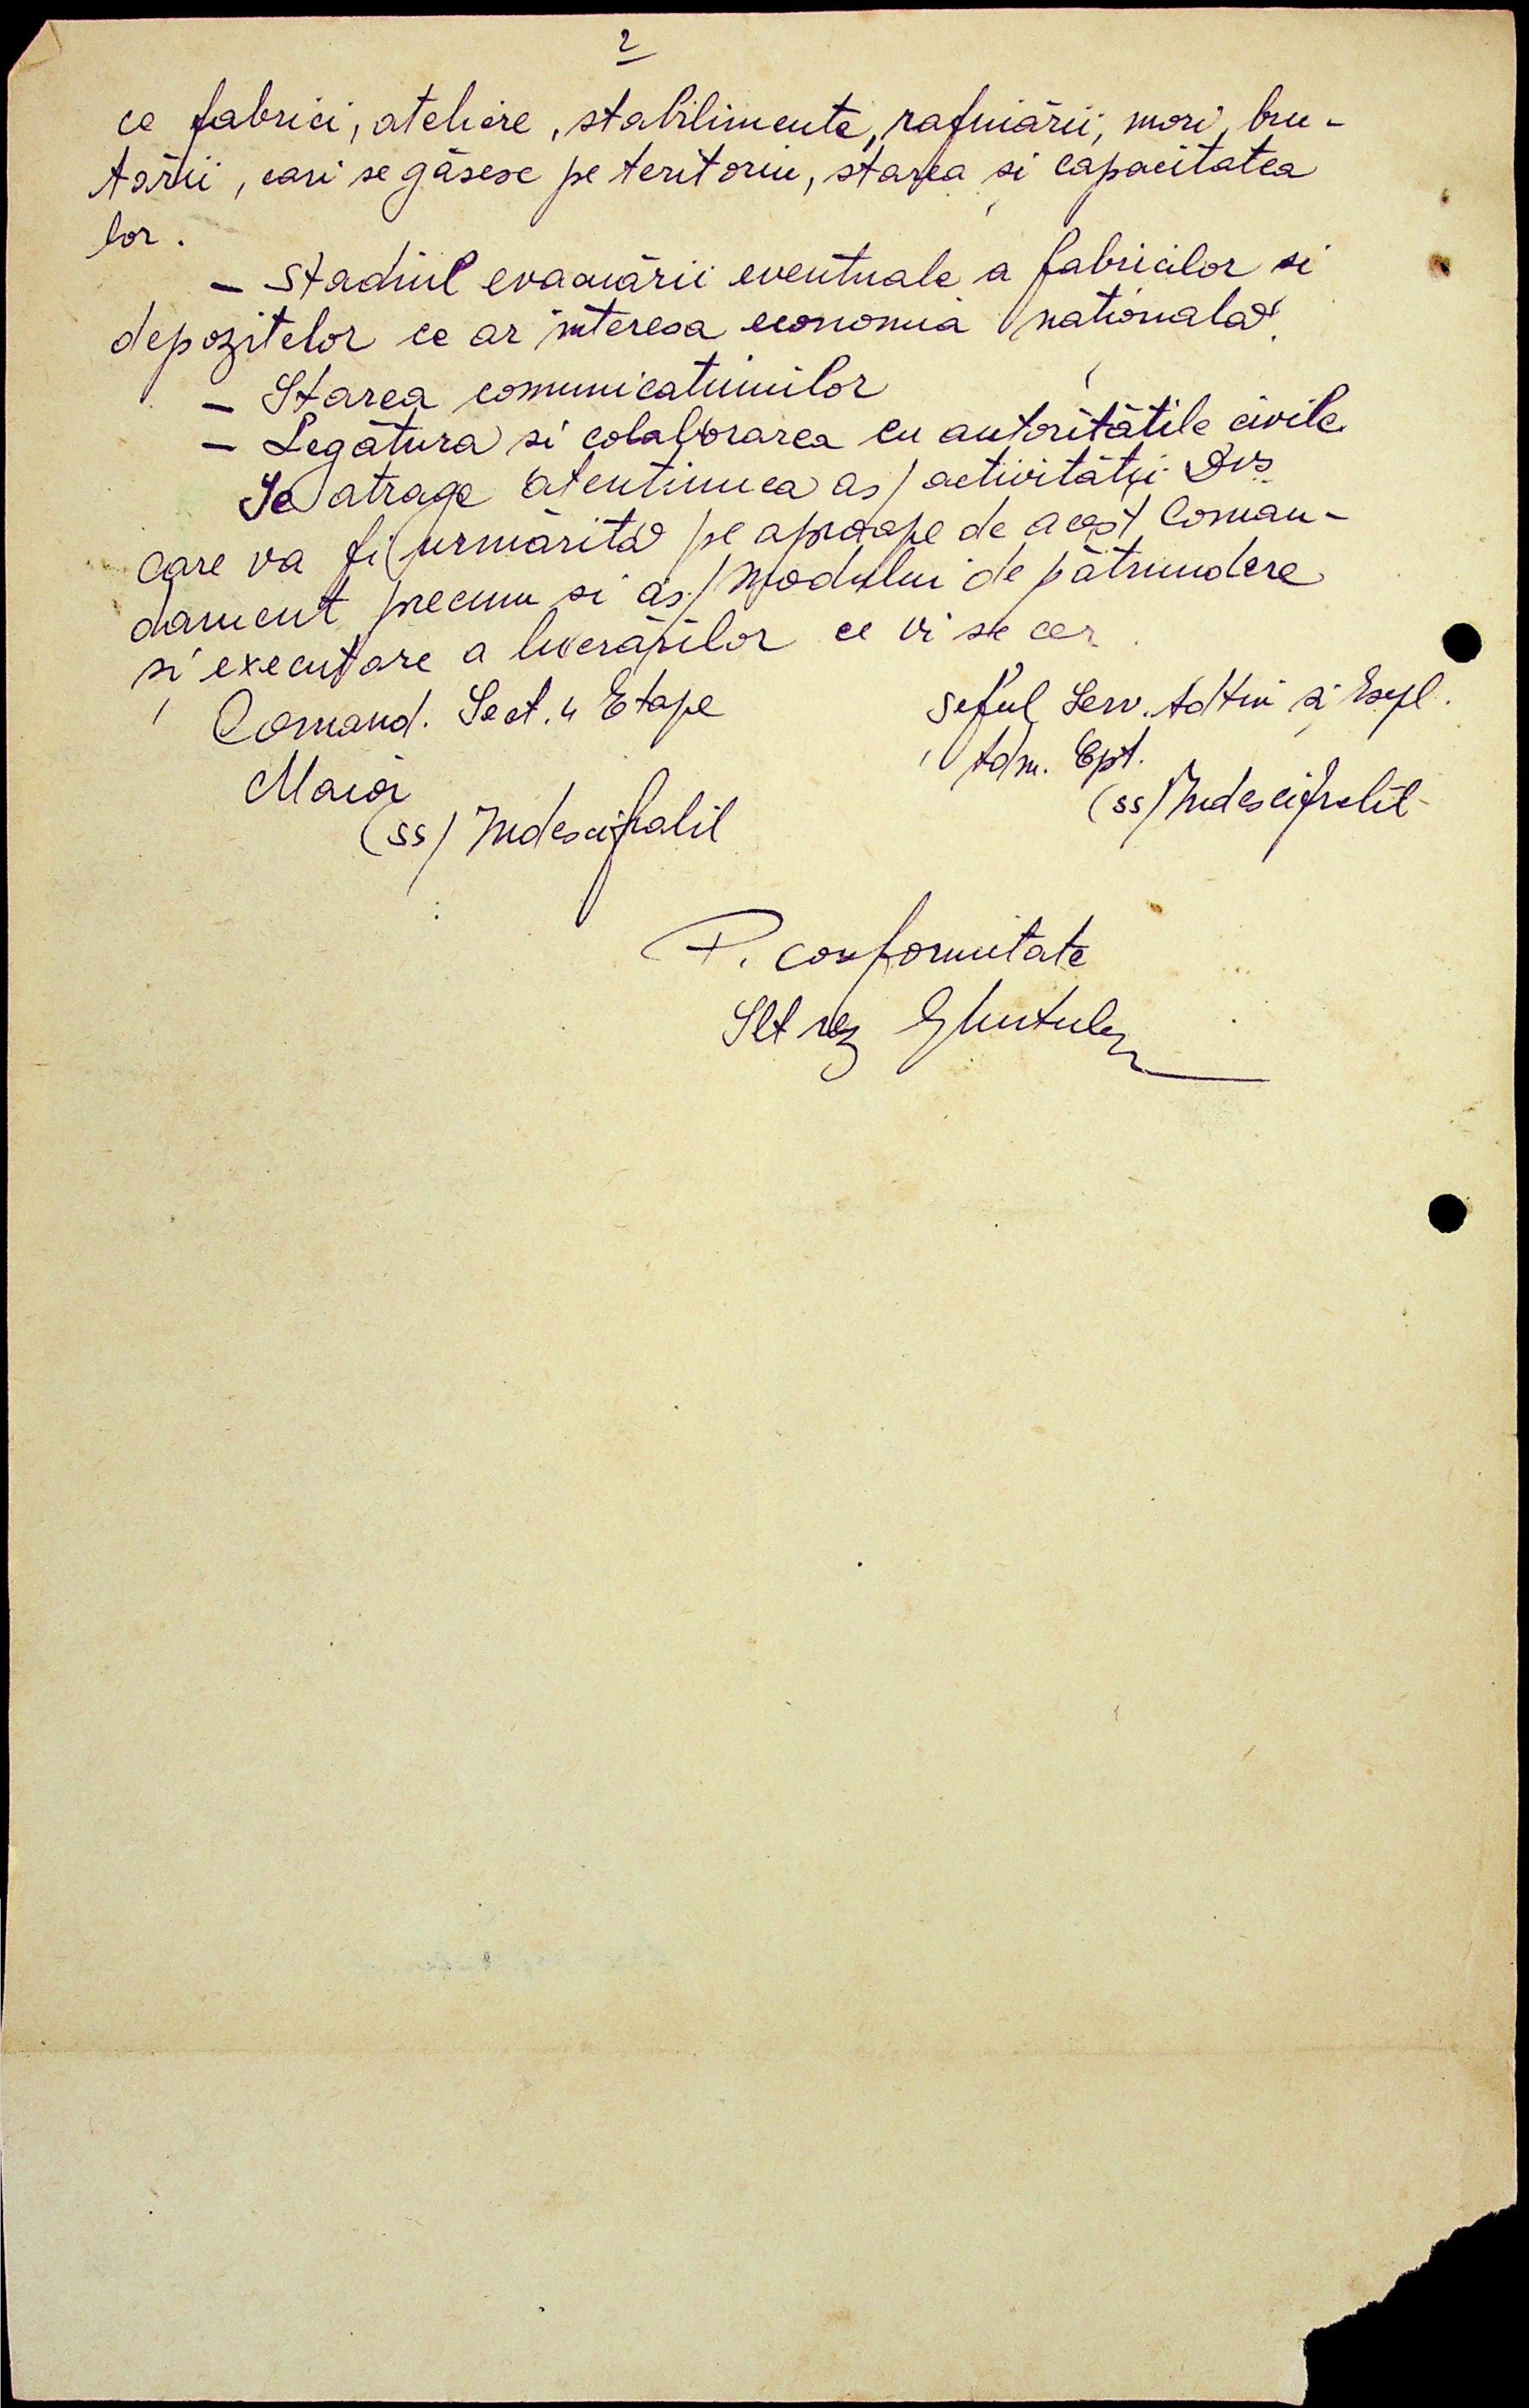 2
ce fabrici, ateliere, stabilimente, rafinării, mori, bru-
tării, cari se găsesc pe teritoriu, starea și capacitatea
lor.
– Stadiul evacuării eventuale a fabricilor si
depozitelor ce ar interesa economia națională.
– Starea comunicatiunilor
– Legătura si colaborarea cu autoritățile civile.
Se atrage atentiunea as/ activității Dvs.
care va fi urmărită pe aproape de acest Coman-
dament precum si as/ modului de pătrundere
și executare a lucrărilor ce vi se cer.
Comand. Sect. 4 Etape
Maior
(ss) Indescifrabil
Șeful Serv. Adtiv și Expl.
Adm. Cpt.
(ss) Indescifrabil
P. conformitate
Slt rez